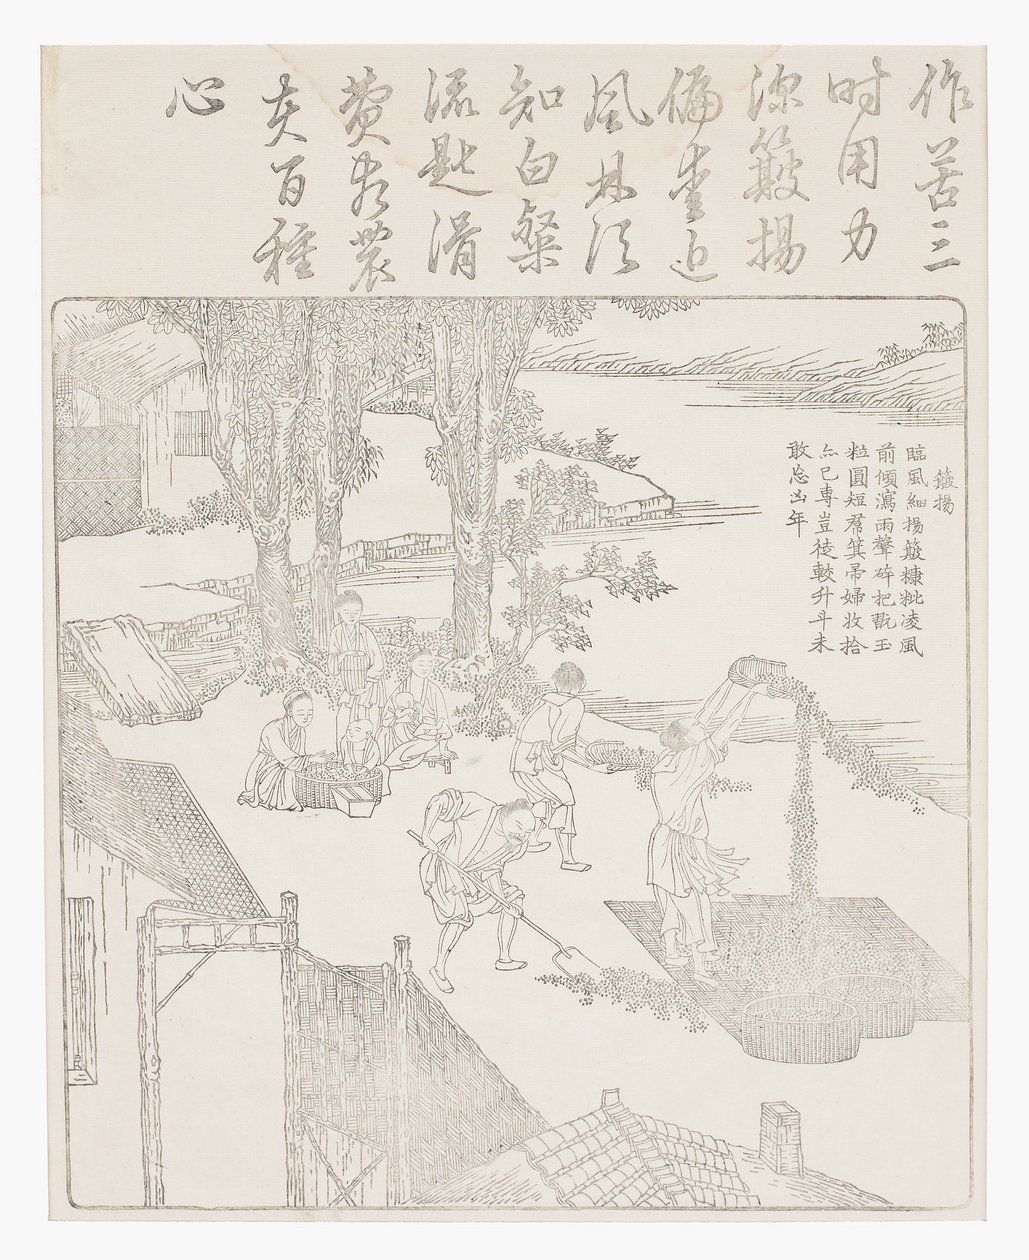 作苦三
時用力
深簸揚
偏愛近
風林須
知白粲
流匙滑
費盡農
夫百種
心
簸揚
臨風細揚簸糠粃凌風
前傾瀉雨聲碎把翫玉
粒圓短帬箕帚婦收拾
亦已專豈徒較升斗未
敢忘凶年